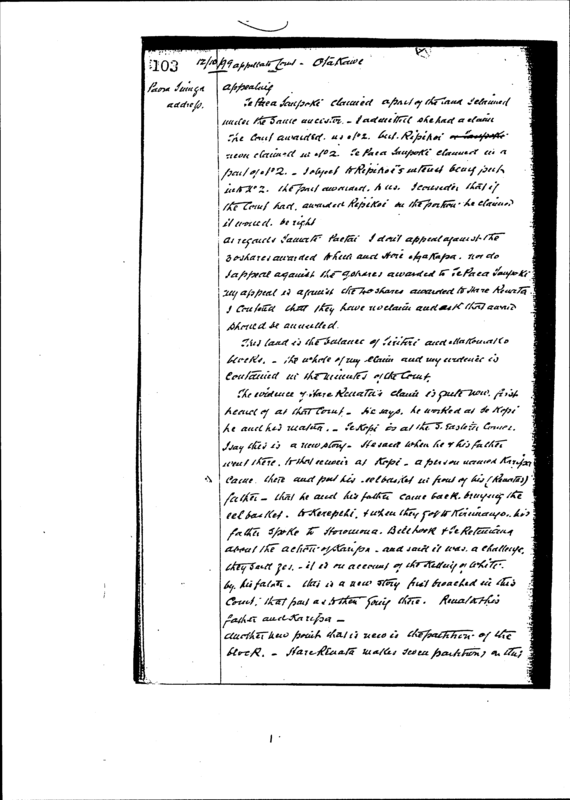 103 12/10/99 Appellate Court - Otakawe
Paora appealing
address.
Te Paea claimed a part of the land I claimed
under the same ancestor. - I admitted she had a claim
The Court awarded us No 2. but Ripikoi
claimed in No 2. Te Paea claimed in a
part of No 2. - I object to Ripikoi's interest being put
into No 2. the part awarded to us. I consider that if
the Court had awarded Ripikoi in the portion he claimed
it would be right
As regards Paetai I don't appeal against the
30 shares awarded to and nor do
I appeal against the shares awarded to Te Paea
my appeal is against the shares awarded to Hare Renata
I contend that they have no claim and ask that award
should be annulled.
This land is the balance of and
blocks. - The whole of my claim and my evidence is
contained in the minutes of the Court.
The evidence of Hare Renata's claim is quite new, first
heard of at that Court - He says he worked at Te Kopi
he and his matua. - Te Kopi is at the S. Eastern corner.
I say this is a new story - He said when he & his father
went there to at Kopi - a person named Karipa
came there and put his eel basket in front of his (Renata's)
father - that he and his father came back bringing the
eel basket to & when they got to his
father spoke to Horomona &
about the action of Karipa - and said it was a challenge,
they said yes - it is on account of the killing of White
by his - this is a new story first broached in this
Court; that part as to their going there. Renata & his
father and Karipa -
Another new point that is new is the partition of the
block. - Hare Renata makes seven partitions on this
1